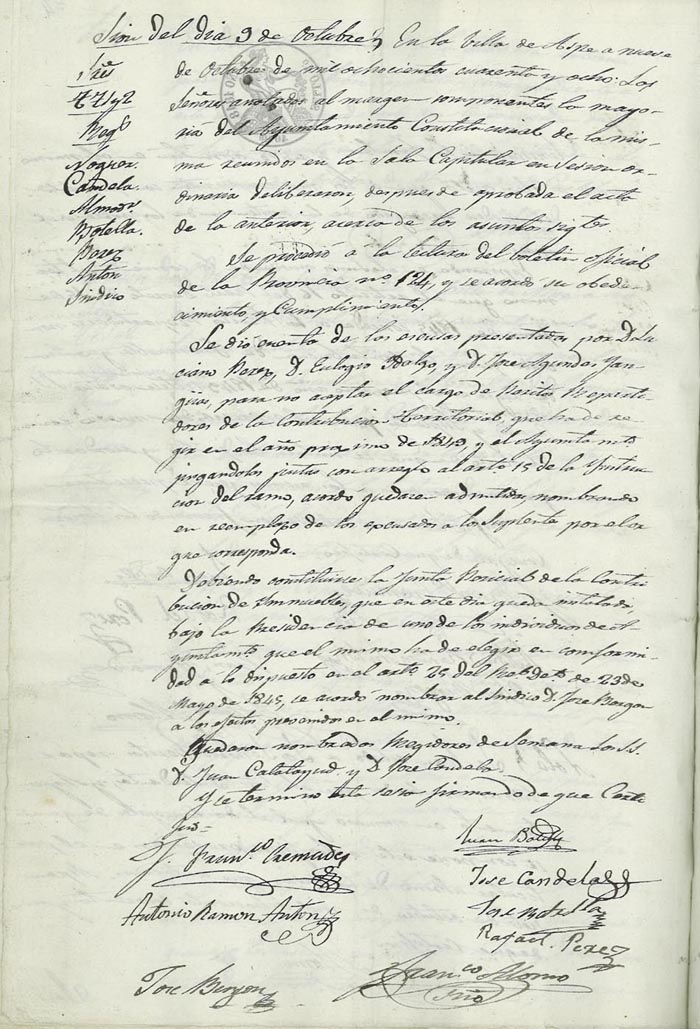 Sion del dia 9 de Octubre
Sres
Reg.s
Noguer.
Candela
Almod.r
Botella.
Perez
Anton
Sindico
En la Villa de Aspe a nueve
de Octubre de mil ochocientos cuarenta y ocho: Los
Señores anotados al margen componentes la mayo-
ria del Ayuntamiento Constitucional de la mis-
ma reunidos en la Sala Capitular en Sesion or-
dinaria deliberaron, despues de aprobada el acta
de la anterior, acerca de los asuntos sigtes
Se procedió a la lectura del boletin oficial
de la Provincia nº 124, y se acordo su obede-
cimiento, y Cumplimiento.
Se dió cuenta de las escusas presentadas por D. Lu
ciano Perez, D. Eulogio Idalgo, y D. Jose
para no aceptar el cargo de Peritos Reparti-
dores de la Contribucion territorial, que ha de re-
gir en el año proximo de 1849, y el Ayuntamto
juzgandolas justas con arreglo al arto 15 de la Instruc
cion del ramo, acordó quedasen admitidas, nombrando
en reemplazo de los escusados a los Suplente por el or
que corresponda.
Debiendo constituirse la Junta Pericial de la Contri
bucion de Inmuebles, que en este dia queda instalada,
bajo la Presidencia de uno de los individuos de A-
yuntamto que el mismo ha de elegir en conformi-
dad a lo dispuesto en el arto 25 del Rl. Dto de 23 de
Mayo de 1845, se acordó nombrar al Sindico D. Jose
a los efectos prevenidos en el mismo.
Quedaron nombrados Regidores de Semana Los SS.
D. Juan Calatayud y D. Jose Candela.
Y se termino esta sesion firmando de que Certi
fico=
Franco Cremades
Juan Botella
Jose Candela
Antonio Ramon Anton
Jose Botella
Rafael Perez
Jose
Franco Alonso
Srio